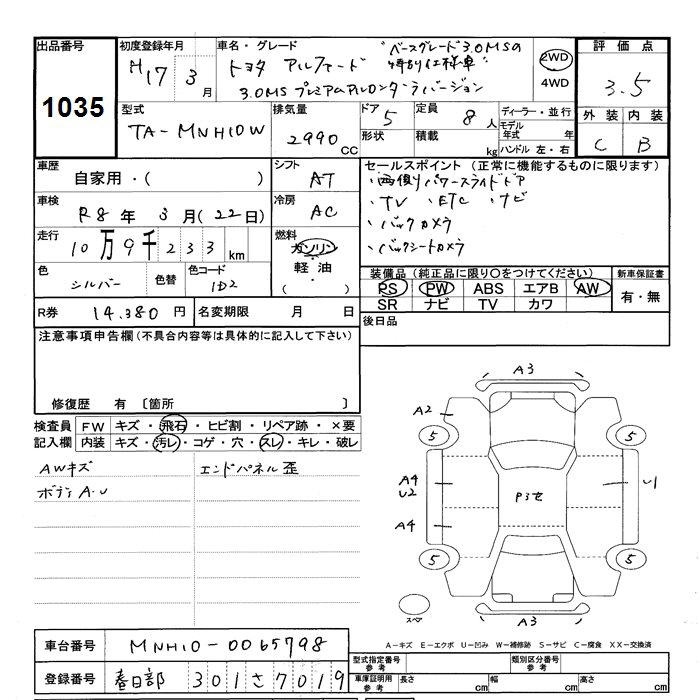 出品番号
1035
初度登録年月
H17 3月
車名・グレード
トヨタ アルファード
"ベースグレード3.0MSの特別仕様車"
3.0MS プレミアムアルカンターラバージョン
2WD
4WD
評価点
3.5
外装 内装
C B
型式
TA-MNH10W
排気量
2990cc
ドア 5
形状
定員 8人
積載 kg
ディーラー・並行
モデル年式 年
ハンドル 左・右
車歴
自家用・( )
シフト
AT
車検
R8年 3月(22日)
冷房
AC
走行
10万9千233km
燃料
ガソリン
軽油
( )
色
シルバー
色替
色コード
1D2
R券 14,380円
名変期限 月 日
セールスポイント(正常に機能するものに限ります)
・両側パワースライドドア
・TV ・ETC ・ナビ
・バックカメラ
・バックシートカメラ
装備品(純正品に限り〇をつけてください)
PS PW ABS エアB AW
SR ナビ TV カワ
新車保証書
有・無
後日品
注意事項申告欄(不具合内容等は具体的に記入して下さい)
修復歴 有 〔箇所 〕
検査員記入欄
FW キズ・飛石・ヒビ割・リペア跡・×要
内装 キズ・汚レ・コゲ・穴・スレ・キレ・破レ
AWキズ
エンドパネル歪
ボディA.U
A3
A2
5
5
A4
U2
A4
P3セ
U1
5
5
スペア
A3
A-キズ E-エクボ U-凹み W-補修跡 S-サビ C-腐食 XX-交換済
車台番号 MNH10-0065798
登録番号 春日部 301 さ 7019
型式指定番号 参考
類別区分番号 参考
車庫証明用 参考
長さ cm
幅 cm
高さ cm